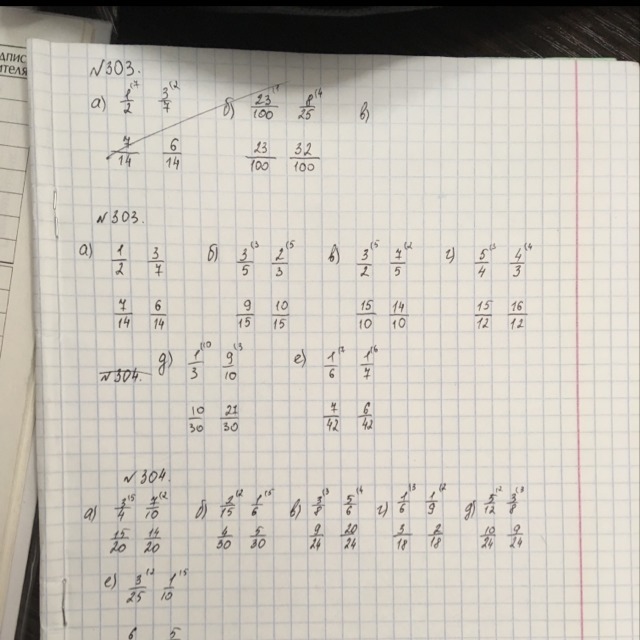 ДПИС
ИТЕЛЯ
№303.
а) 1/2 (7 3/7 (2 б) 23/100 (1 8/25 (4 в)
7/14 6/14 23/100 32/100
№303.
а) 1/2 3/7 б) 3/5 (3 2/3 (5 в) 3/2 (5 7/5 (2 г) 5/4 (3 4/3 (4
7/14 6/14 9/15 10/15 15/10 14/10 15/12 16/12
№304. д) 1/3 (10 9/10 (3 е) 1/6 (7 1/7 (6
10/30 27/30 7/42 6/42
№304.
а) 3/4 (5 7/10 (2 б) 2/15 (2 1/6 (5 в) 3/8 (3 5/6 (4 г) 1/6 (3 1/9 (2 д) 5/12 (2 3/8 (3
15/20 14/20 4/30 5/30 9/24 20/24 3/18 2/18 10/24 9/24
е) 3/25 (2 1/10 (5
6 5